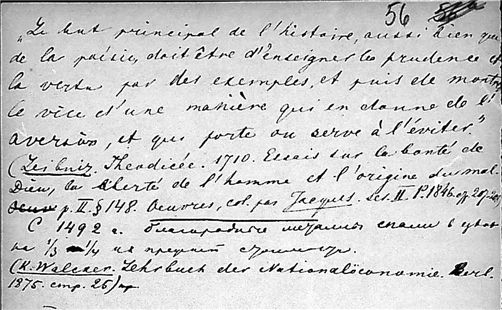 56
„Le but principal de l'histoire, aussi bien que
de la poésie, doit être d'enseigner la prudence et
la vertu par des exemples, et puis de montrer
le vice d'une manière qui en donne de l'
aversion, et qui porte ou serve à l'éviter."
(Leibniz. Theodicée. 1710. Essais sur la bonté de
Dieu, la liberté de l'homme et l'origine du mal.
p. II. § 148. Oeuvres, col. par Jacques. Ser. II P. 1846.
С 1492 г. благородные металлы упали в
на 1/3 — 1/4 на прежней
(K. Walcker. Lehrbuch der Nationalöconomie. Berl.
1875. стр. 25)